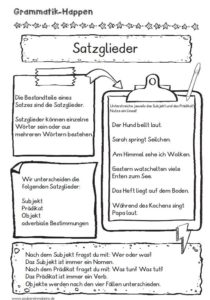 Grammatik-Happen
Satzglieder
Die Bestandteile eines
Satzes sind die Satzglieder.
Satzglieder können einzelne
Wörter sein oder aus
mehreren Wörtern bestehen.
Unterstreiche jeweils das Subjekt und das Prädikat.
Der Hund bellt laut.
Sarah springt Seilchen.
Am Himmel sehe ich Wolken.
Gestern watschelten viele
Enten zum See.
Das Heft liegt auf dem Boden.
Während des Kochens singt
Papa laut.
Wir unterscheiden die
folgenden Satzglieder:
Subjekt
Prädikat
Objekt
adverbiale Bestimmungen
Nach dem Subjekt fragst du mit: Wer oder was?
Das Subjekt ist immer ein Nomen.
Nach dem Prädikat fragst du mit: Was tun? Was tut?
Das Prädikat ist immer ein Verb.
Objekte werden nach den vier Fällen unterschieden.